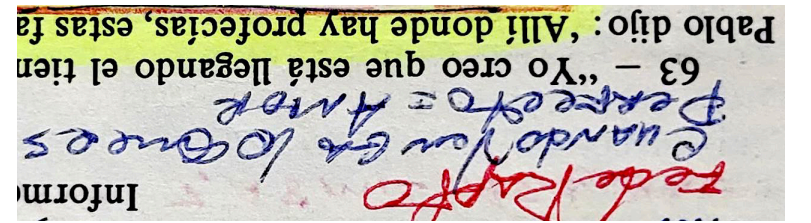 Fe de Rapto Inform
Cuando Venga lo que es
Perfecto = Amor
63 – “Yo creo que está llegando el tien
Pablo dijo: ‘Allí donde hay profecías, estas fa